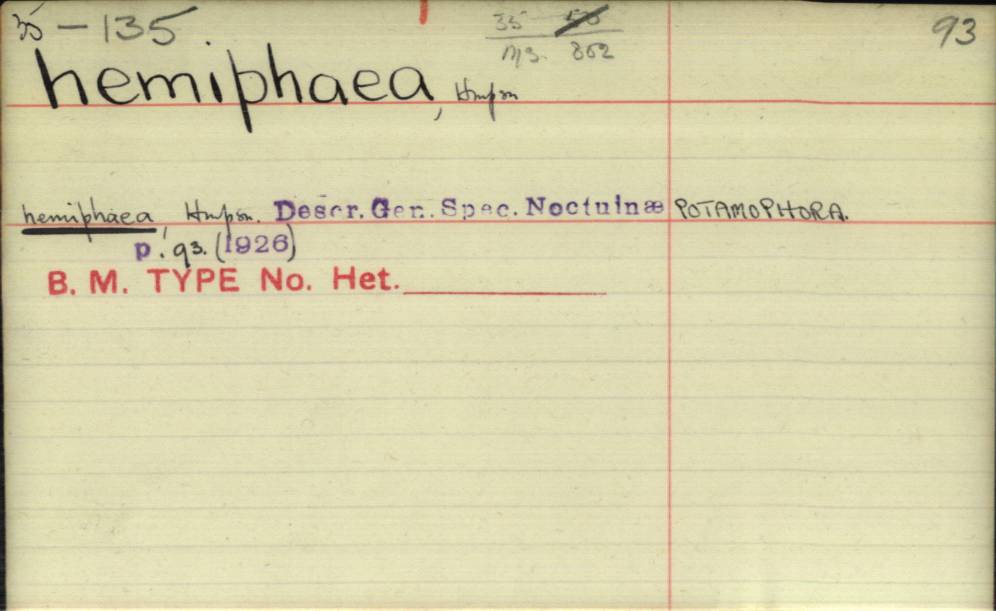 35 - 135. 35 93
hemiphaea, Hmpsn 862
hemiphaea, Hmpsn. Descr. Gen. Spec. Noctuinæ POTAMOPHORA.
p. 93. (1926)
B. M. TYPE No. Het.